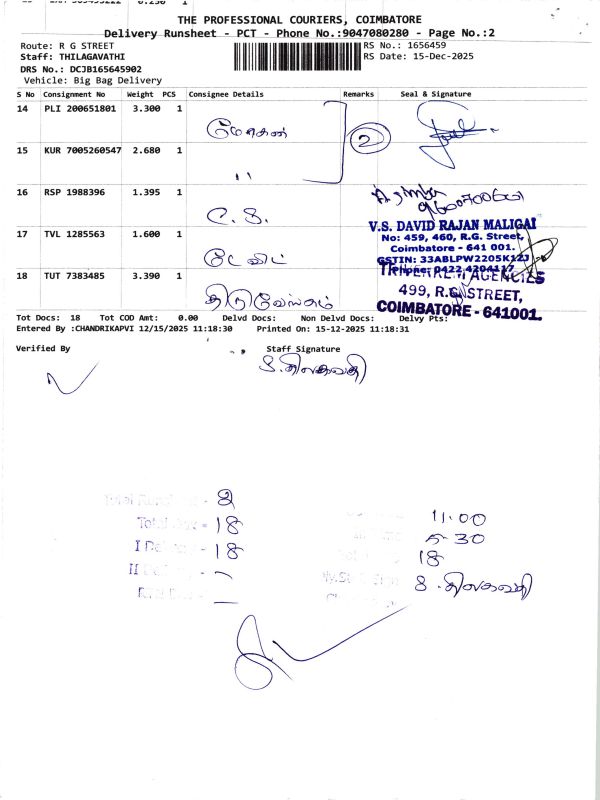 THE PROFESSIONAL COURIERS, COIMBATORE
Delivery Runsheet - PCT - Phone No.:9047080280 - Page No.:2
Route: R G STREET
RS No.: 1656459
Staff: THILAGAVATHI
RS Date: 15-Dec-2025
DRS No.: DCJB165645902
Vehicle: Big Bag Delivery
S No Consignment No Weight PCS Consignee Details Remarks Seal & Signature
14 PLI 200651801 3.300 1
மோகன்
2
15 KUR 7005260547 2.680 1
"
16 RSP 1988396 1.395 1
C. S.
17 TVL 1285563 1.600 1
டேவிட்
18 TUT 7383485 3.390 1
திருவேங்கடம்
V.S. DAVID RAJAN MALIGAI
No: 459, 460, R.G. Street,
Coimbatore - 641 001.
GSTIN: 33ABLPW2205K1ZJ
Phone: 0422 4204117
AGENCIES
499, R.G. STREET,
COIMBATORE - 641001.
Tot Docs: 18 Tot COD Amt: 0.00 Delvd Docs: Non Delvd Docs: Delvy Pts:
Entered By :CHANDRIKAPVI 12/15/2025 11:18:30 Printed On: 15-12-2025 11:18:31
Verified By Staff Signature
S. திலகவதி
2
18
I 18
II
11.00
5-30
18
S. திலகவதி